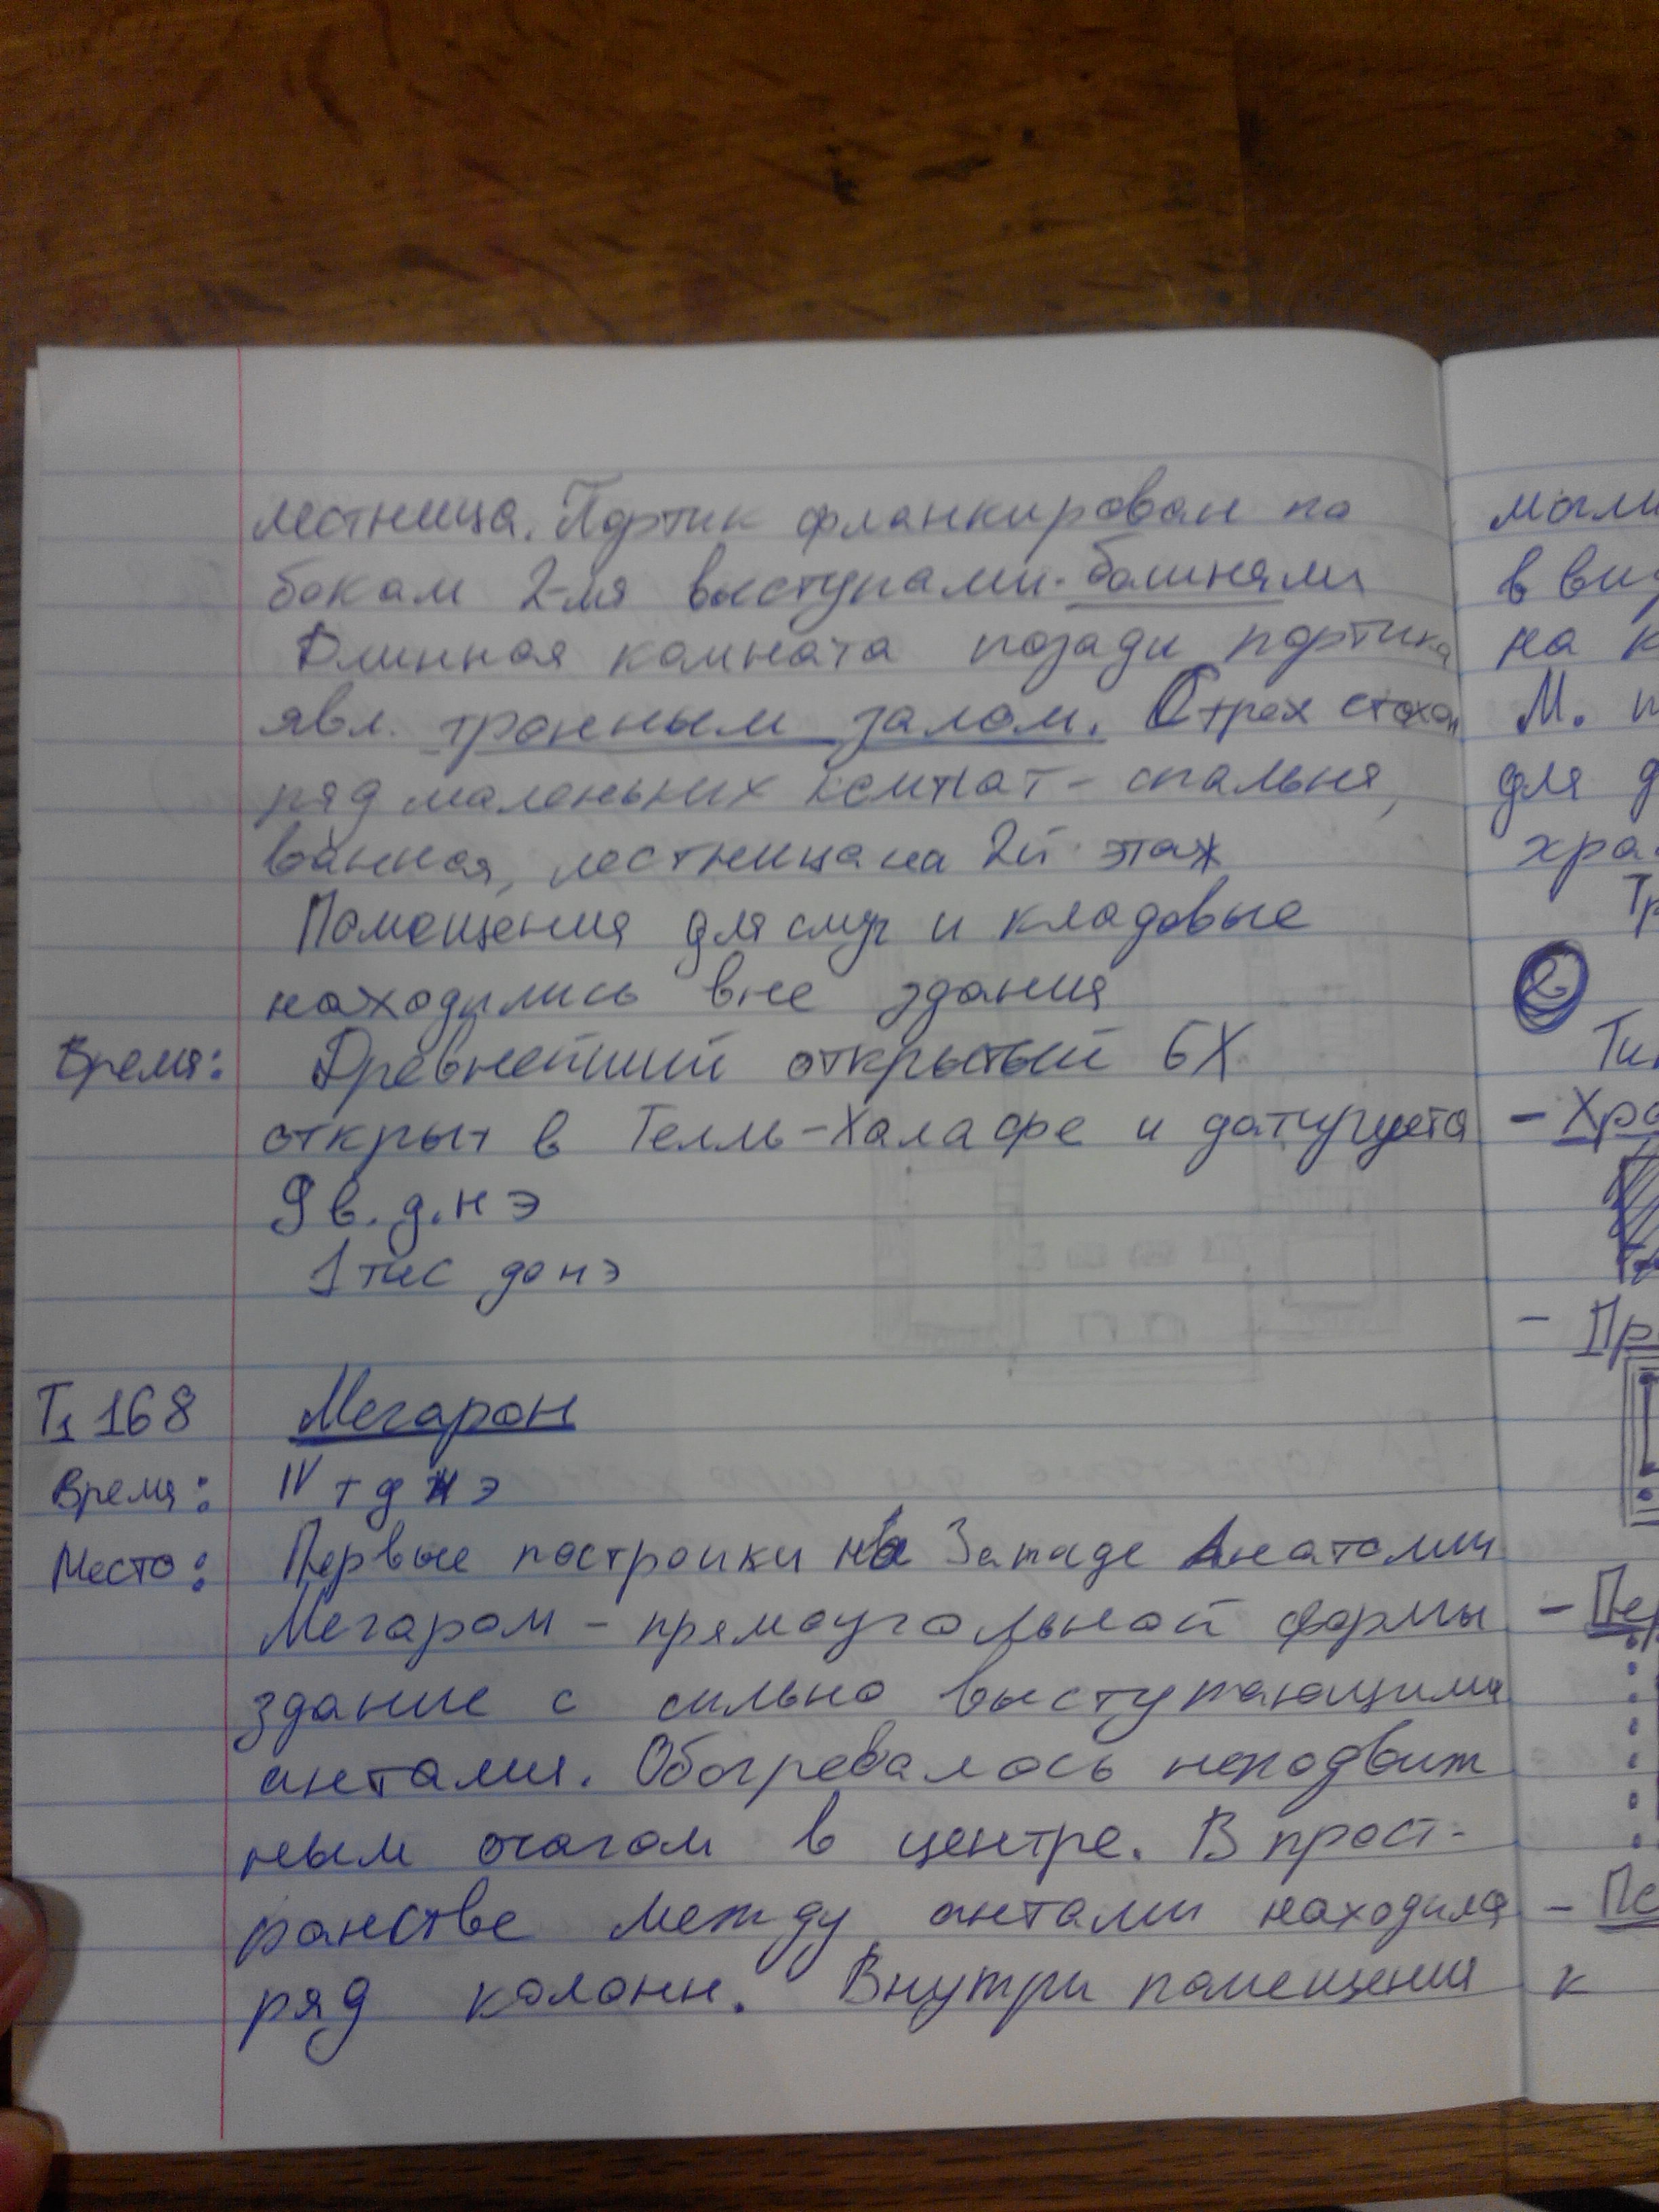 лестница. Портик фланкирован по
бокам 2-мя выступами-башнями
Длинная комната позади портика
явл. тронным залом. С трех стохон
ряд маленьких комнат - спальня,
ванная, лестница на 2й этаж
Помещения для слуг и кладовые
находились вне здания
Время: Древнейший открытый БХ
открыт в Телль-Халафе и датируется
9 в. д.н э
1 тыс до н э
Т1 168 Мегарон
Время: IV т д н э
Место: Первые постройки на Западе Анатолии
Мегарон - прямоугольной формы
здание с сильно выступающими
антами. Обогревалось неподвиж
ным очагом в центре. В прост-
ранстве между антами находился
ряд колонн. Внутри помещения
могли
в вид
на к
М.
для д
хра
Тр
2
Тип
- Хра
- Пр
- Пер
- Пс
к